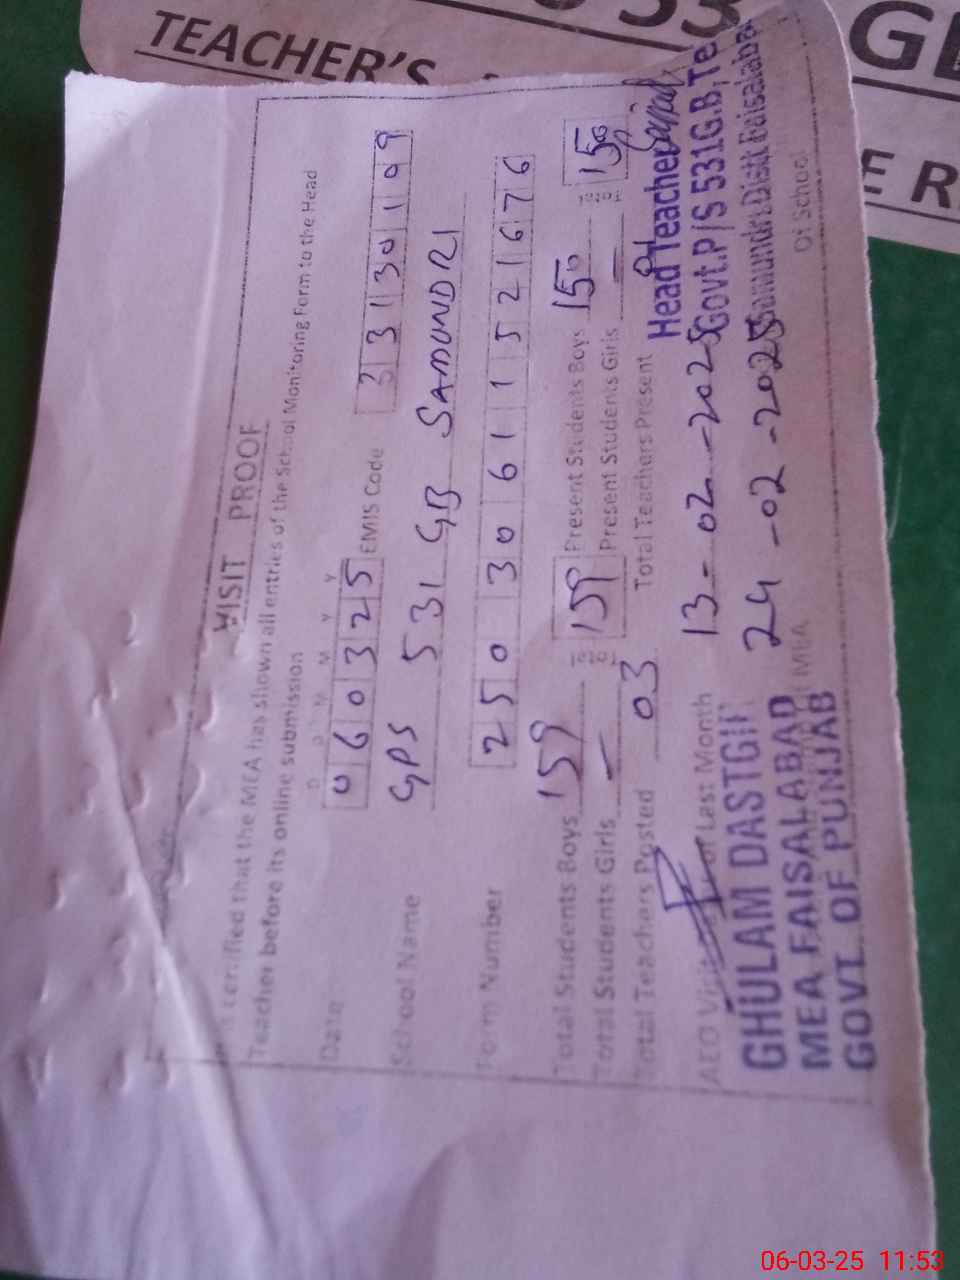 TEACHER'S
53
GE
E R
VISIT PROOF
certified that the MEA has shown all entries of the School Monitoring Form to the Head
Teacher before its online submission
D D M M Y Y
Date 060325 EMIS Code 33130109
School Name GPS 531 GB SAMUNDRI
Form Number 25030611521676
Total Students Boys 159 159 Present Students Boys 150 150
Total Students Girls — Present Students Girls —
Total Teachers Posted 03 Total Teachers Present
AEO Last Month 13-02-2025
24-02-2025
GHULAM DASTGIR
MEA FAISALABAD
GOVT. OF PUNJAB
MEA
Head Teacher
Govt.P/S 531G.B,Te
Samundri Distt Faisalabad
Of School
06-03-25 11:53